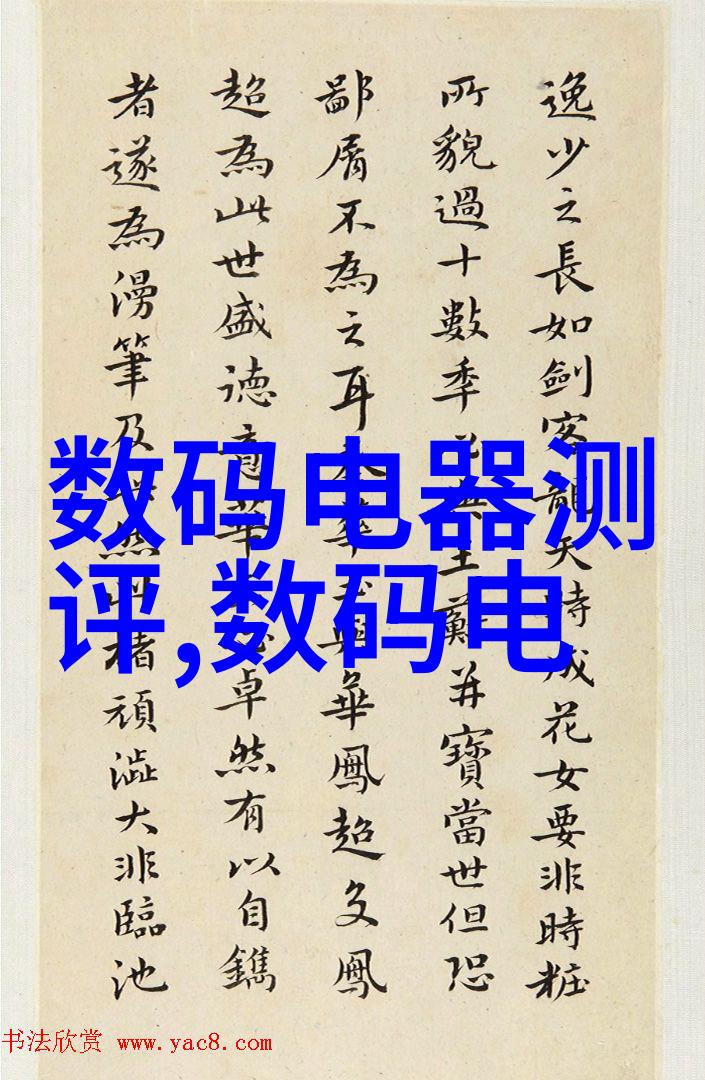 逸少之長如劍客龍天時成花女要非時粧
所貌過十數季王蘇并寶當世但恐
鄙屑不為之耳華鳳超文鳳
超為此世盛德卓然有以自鐫
者遂為漫筆及然楮頑澁大非臨池
数码电器测
评,数码电
书法欣赏 www.yac8.com